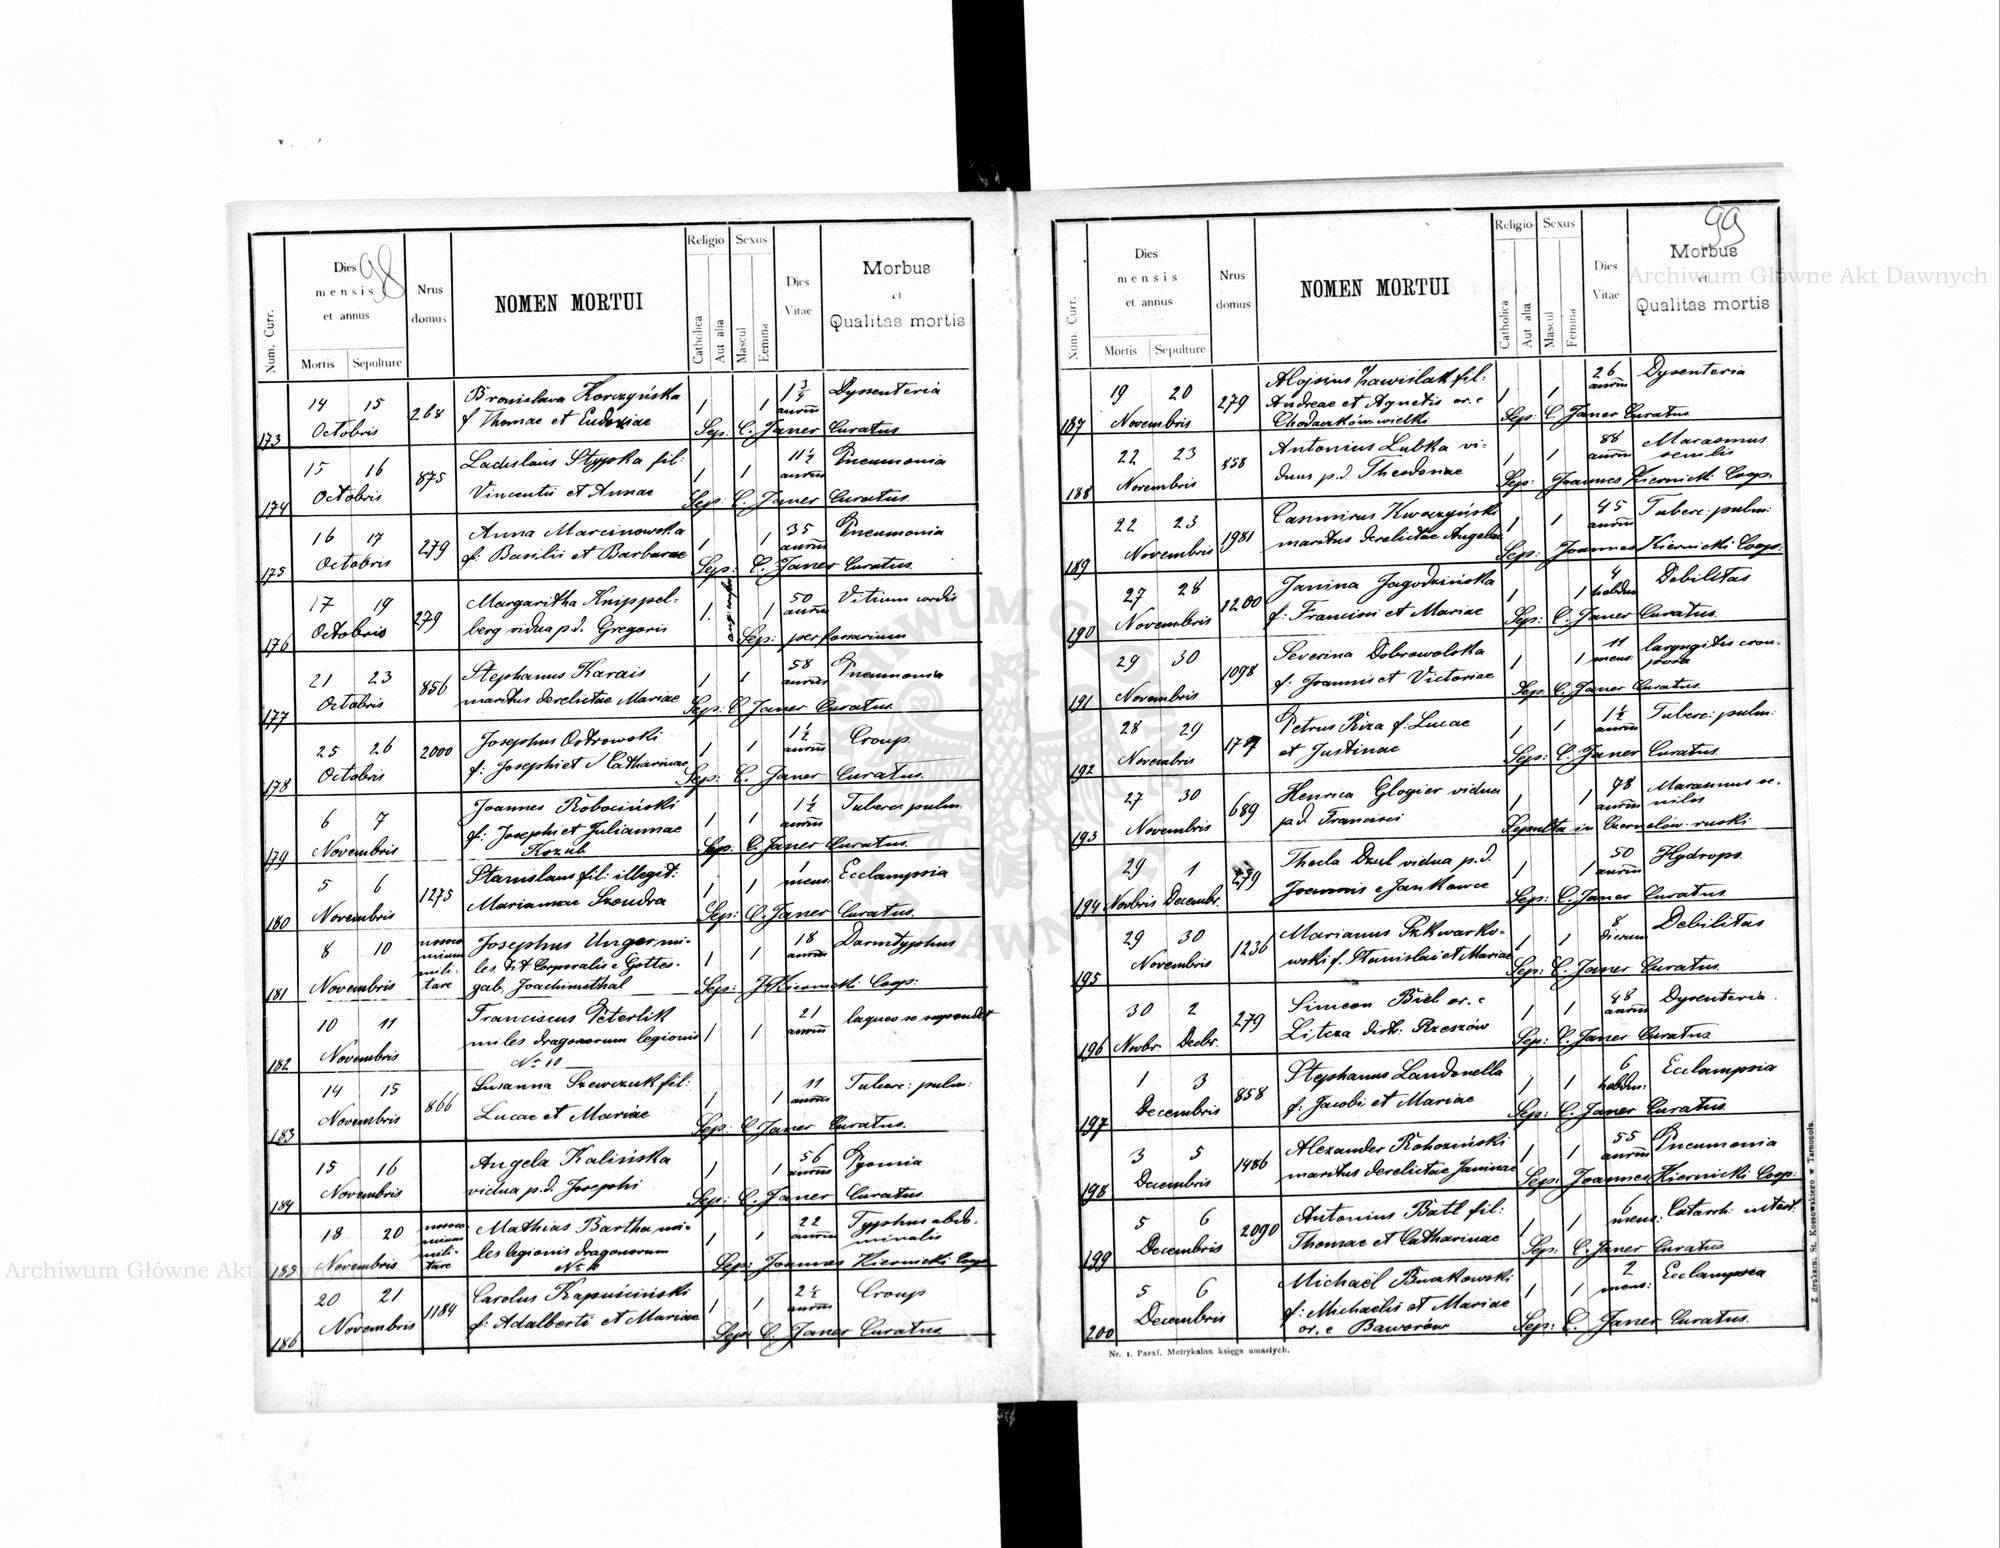 98
Num. Curr.
Dies
mensis
et annus
Mortis
Sepulture
Nrus
domus
NOMEN MORTUI
Religio
Catholica
Aut alia
Sexus
Mascul
Femina
Dies
Vitae
Morbus
et
Qualitas mortis
173 14 15 Octobris 268
Bronislava Korczyńska
f. Thomae et Eudoxiae
1 1 1 3/4 annm Dysenteria
Sep: C. Janer Curatus
174 15 16 Octobris 875
Ladislaus Stypka fil:
Vincentii et Annae
1 1 11 1/2 annm Pneumonia
Sep: C. Janer Curatus
175 16 17 Octobris 279
Anna Marcinowska
f: Basilii et Barbarae
1 1 35 annm Pneumonia
Sep: C. Janer Curatus
176 17 19 Octobris 279
Margaritha Knippel-
berg vidua p.d. Gregorii
1. 1 50 annm Vitium cordis
Sep: per fossarium
177 21 23 Octobris 856
Stephanus Karais
maritus derelictae Mariae
1 1 58 annm Pneumonia
Sep: C Janer Curatus
178 25 26 Octobris 2000
Josephus Ostrowski
f: Josephi et Catharinae
1 1 1 1/2 annm Croup
Sep: C. Janer Curatus
179 6 7 Novembris
Joannes Robociński
f: Josephi et Juliannae
Kozub
1 1 1 1/2 annm Tuberc: pulm
Sep: C. Janer Curatus
180 5 6 Novembris 1275
Stanislaus fil: illegit:
Mariannae Szondra
1 1 1 mens. Ecclampsia
Sep: C. Janer Curatus
181 8 10 Novembris
noso
comium
mili-
tare
Josephus Unger mi-
les tit Corporalis e Gottes-
gab, Joachimsthal
1 1 18 annm Darmtyphus
Sep: J. Kiernicki Coop:
182 10 11 Novembris
Franciscus Peterlik
miles dragonorum legionis
No 11
1 1 21 annm laqueo se suspendit
183 14 15 Novembris 866
Susanna Szewczuk fil:
Lucae et Mariae
1 1 11 annm Tuberc: pulm:
Sep: C Janer Curatus
184 15 16 Novembris
Angela Kalińska
vidua p.d. Josephi
1 1 56 annm Pyomia
Sep: C. Janer Curatus
185 18 20 Novembris
mili-
tare
Mathias Bartha mi-
les legionis dragonorum
1 1 22 annm Typhus abdo-
minalis
Sep: Joannes Kiernicki Coop
186 20 21 Novembris 1184
Carolus Kapuściński
f: Adalberti et Mariae
1 1 2 1/2 annm Croup
Sep: C. Janer Curatus
99
Num. Curr.
Dies
mensis
et annus
Mortis
Sepulture
Nrus
domus
NOMEN MORTUI
Religio
Catholica
Aut alia
Sexus
Mascul
Femina
Dies
Vitae
Morbus
et
Qualitas mortis
187 19 20 Novembris 279
Alojsius Zawiślak fil:
Andreae et Agnetis or. e
Chodaczków wielki
1 1 26 annm Dysenteria
Sep: C. Janer Curatus
188 22 23 Novembris 858
Antonius Lubka vi-
duus p.d. Theodorae
1 1 88 annm Marasmus
senilis
Sep: Joannes Kiernicki Coop.
189 22 23 Novembris 1981
Casimirus Kwaczyński
maritus derelictae Angelae
1 1 45 annm Tuberc: pulm:
Sep: Joannes Kiernicki Coop:
190 27 28 Novembris 1200
Janina Jagodzińska
f: Francisci et Mariae
1 1 4 hebdm Debilitas
Sep: C. Janer Curatus
191 29 30 Novembris 1098
Severina Dobrowolska
f: Joannis et Victoriae
1 1 11 mens: laryngitis crou-
posa
Sep: C. Janer Curatus
192 28 29 Novembris 1787
Petrus Riza f: Lucae
et Justinae
1 1 1 1/2 annm Tuberc: pulm:
Sep: C. Janer Curatus
193 27 30 Novembris 689
Henrica Glogier vidua
p.d. Francisci
1 1 78 annm Marasmus se-
nilis
Sepulta in Czernelów ruski
194 29 1 Novbris Decembr. 279
Thecla Dzul vidua p.d.
Joannis e Jankowce
1 1 50 annm Hydrops.
Sep: C. Janer Curatus
195 29 30 Novembris 1236
Marianus Szkwarko-
wski f. Stanislai et Mariae
1 1 8 dierum Debilitas
Sep: C. Janer Curatus
196 30 2 Novbr. Decbr. 279
Simeon Biel or. e
Litcza distr: Rzeszów
1 1 48 annm Dysenteria.
Sep: C. Janer Curatus
197 1 3 Decembris 858
Stephanus Landonella
f: Jacobi et Mariae
1 1 6 hebdm: Ecclampsia
Sep: C. Janer Curatus
198 3 5 Decembris 1486
Alexander Rohoziński
maritus derelictae Janinae
1 1 55 annm Pneumonia
Sep: Joannes Kiernicki Coop:
199 5 6 Decembris 2090
Antonius Batl fil:
Thomae et Catharinae
1 1 6 mens: Catarrh: intest:
Sep: C. Janer Curatus
200 5 6 Decembris
Michaël Buczkowski
f: Michaelis et Mariae
or. e Baworów
1 1 2 mens: Ecclampsia
Sep: C. Janer Curatus.
Nr. 1. Paraf. Metrykalna księga umarłych.
Z drukarn. St. Kossowskiego w Tarnopolu.
Archiwum Główne Akt Dawnych
Archiwum Główne Akt Dawnych
ARCHIWUM GŁÓWNE AKT DAWNYCH